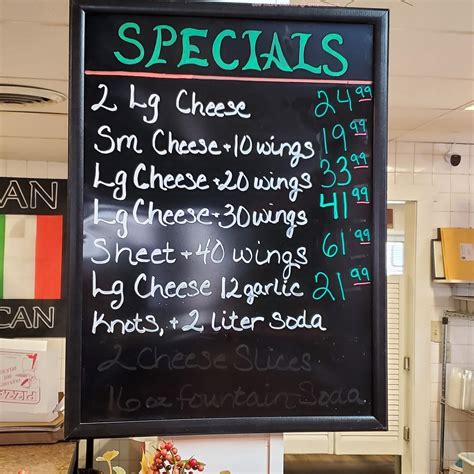 SPECIALS
2 Lg Cheese 24.99
Sm Cheese + 10 wings 19.99
Lg Cheese + 20 wings 33.99
Lg Cheese + 30 wings 41.99
Sheet + 40 wings 61.99
Lg Cheese 12 garlic 21.99
Knots, + 2 liter Soda
2 Cheese Slices
16 oz Fountain Soda
CAN
CAN